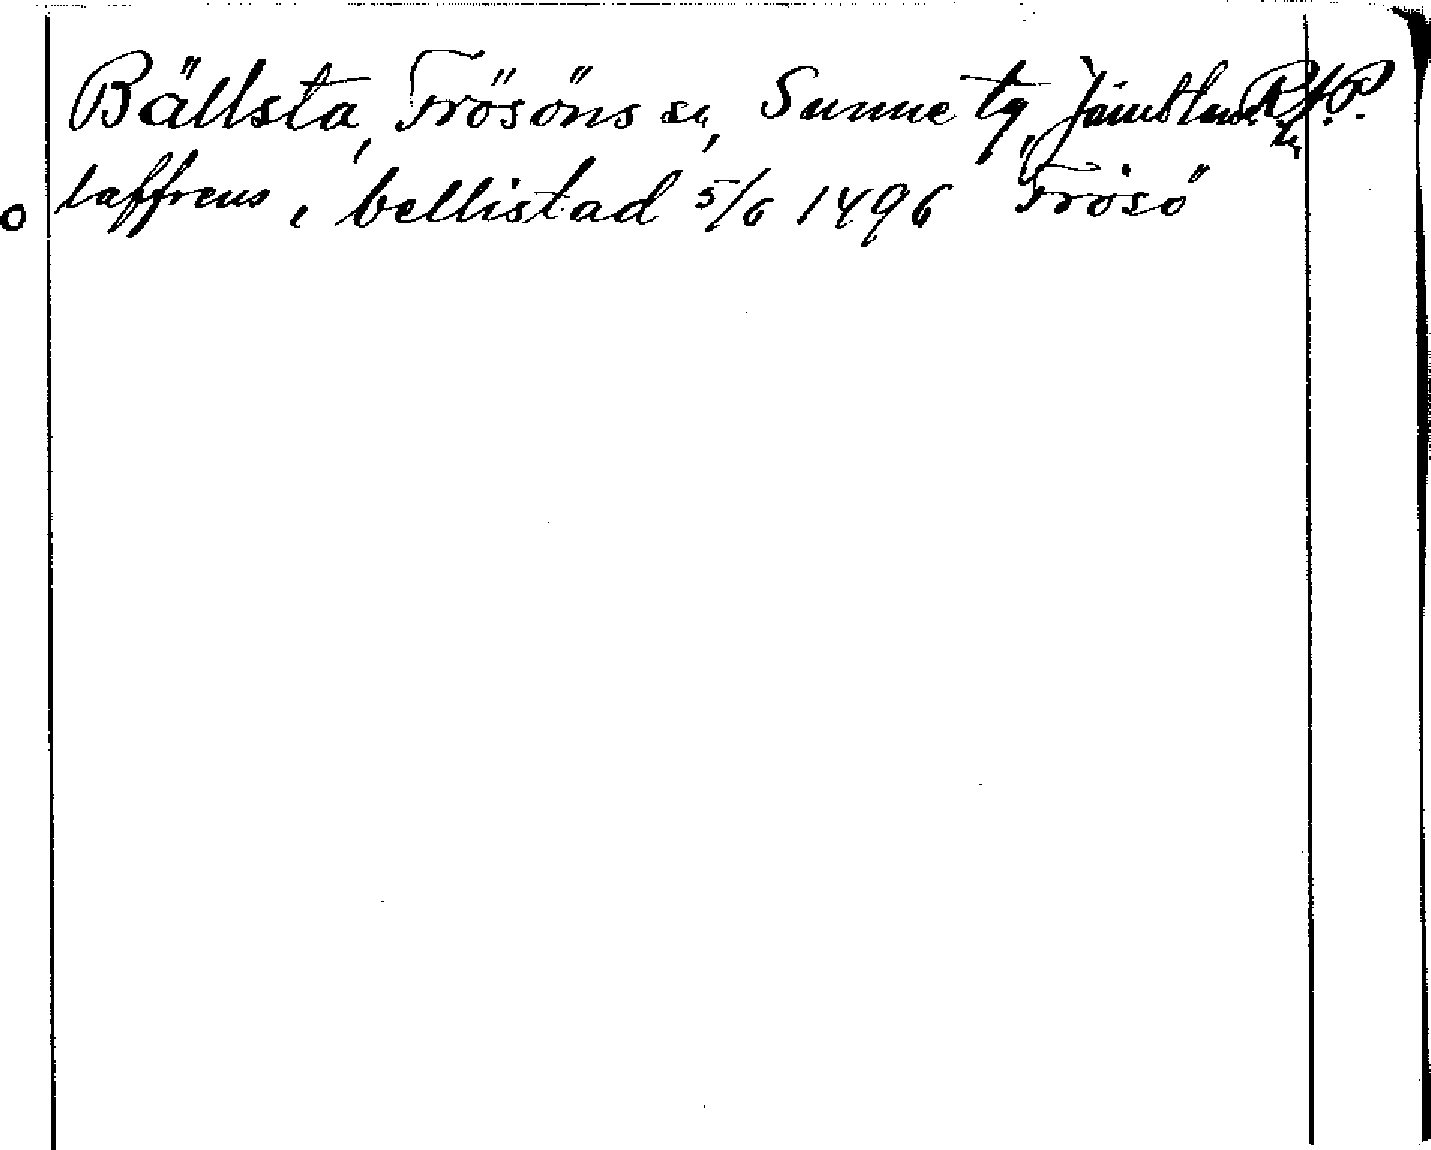 Bällsta, Frösöns sn, Sunne tg, Jämtland R.A.P.
laffrens i bellistad 5/6 1496 Frösö